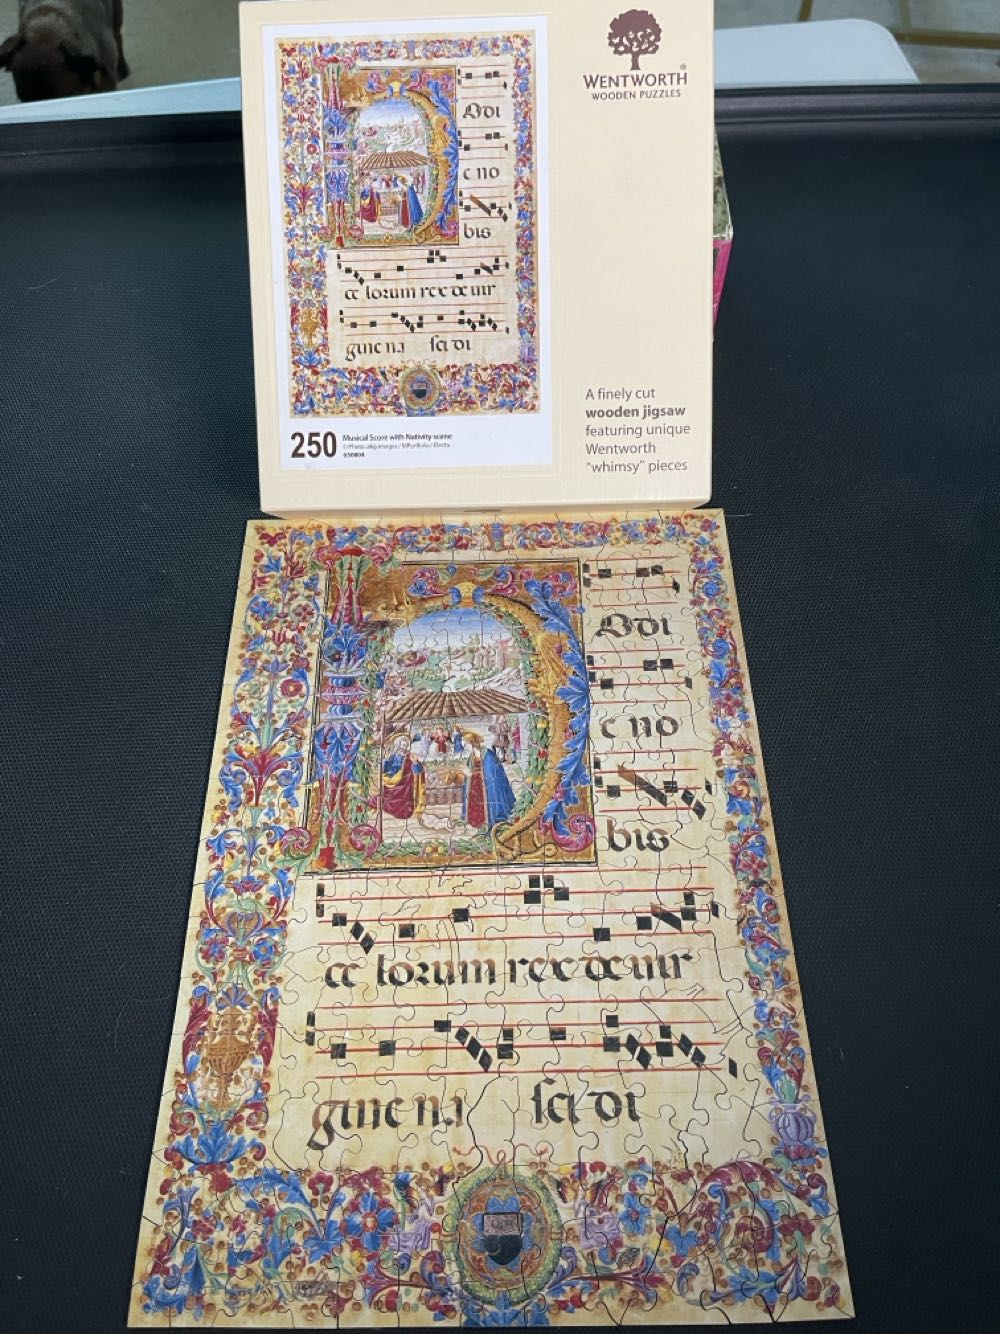 WENTWORTH®
WOODEN PUZZLES
Hodi
e no
bis
ce lorum rex de uir
gine na sci di
250 Musical Score with Nativity scene
© Photo akg-images / MPortfolio / Electa
650804
A finely cut
wooden jigsaw
featuring unique
Wentworth
"whimsy" pieces
Hodi
e no
bis
ce lorum rex de uir
gine na sci di